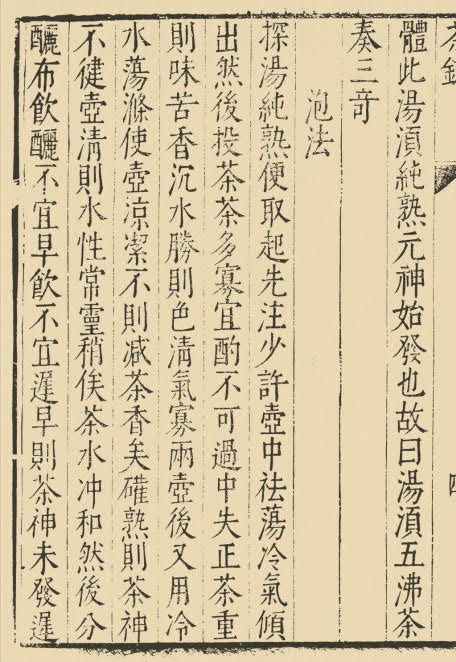 茶錄
體此湯湏純熟元神始發也故曰湯湏五沸茶
奏三竒
泡法
探湯純熟便取起先注少許壺中祛蕩冷氣傾
出然後投茶茶多寡宜酌不可過中失正茶重
則味苦香沉水勝則色清氣寡兩壺後又用冷
水蕩滌使壺涼潔不則减茶香矣確熟則茶神
不健壺清則水性常靈稍俟茶水冲和然後分
釃布飲釃不宜早飲不宜遲早則茶神未發遲